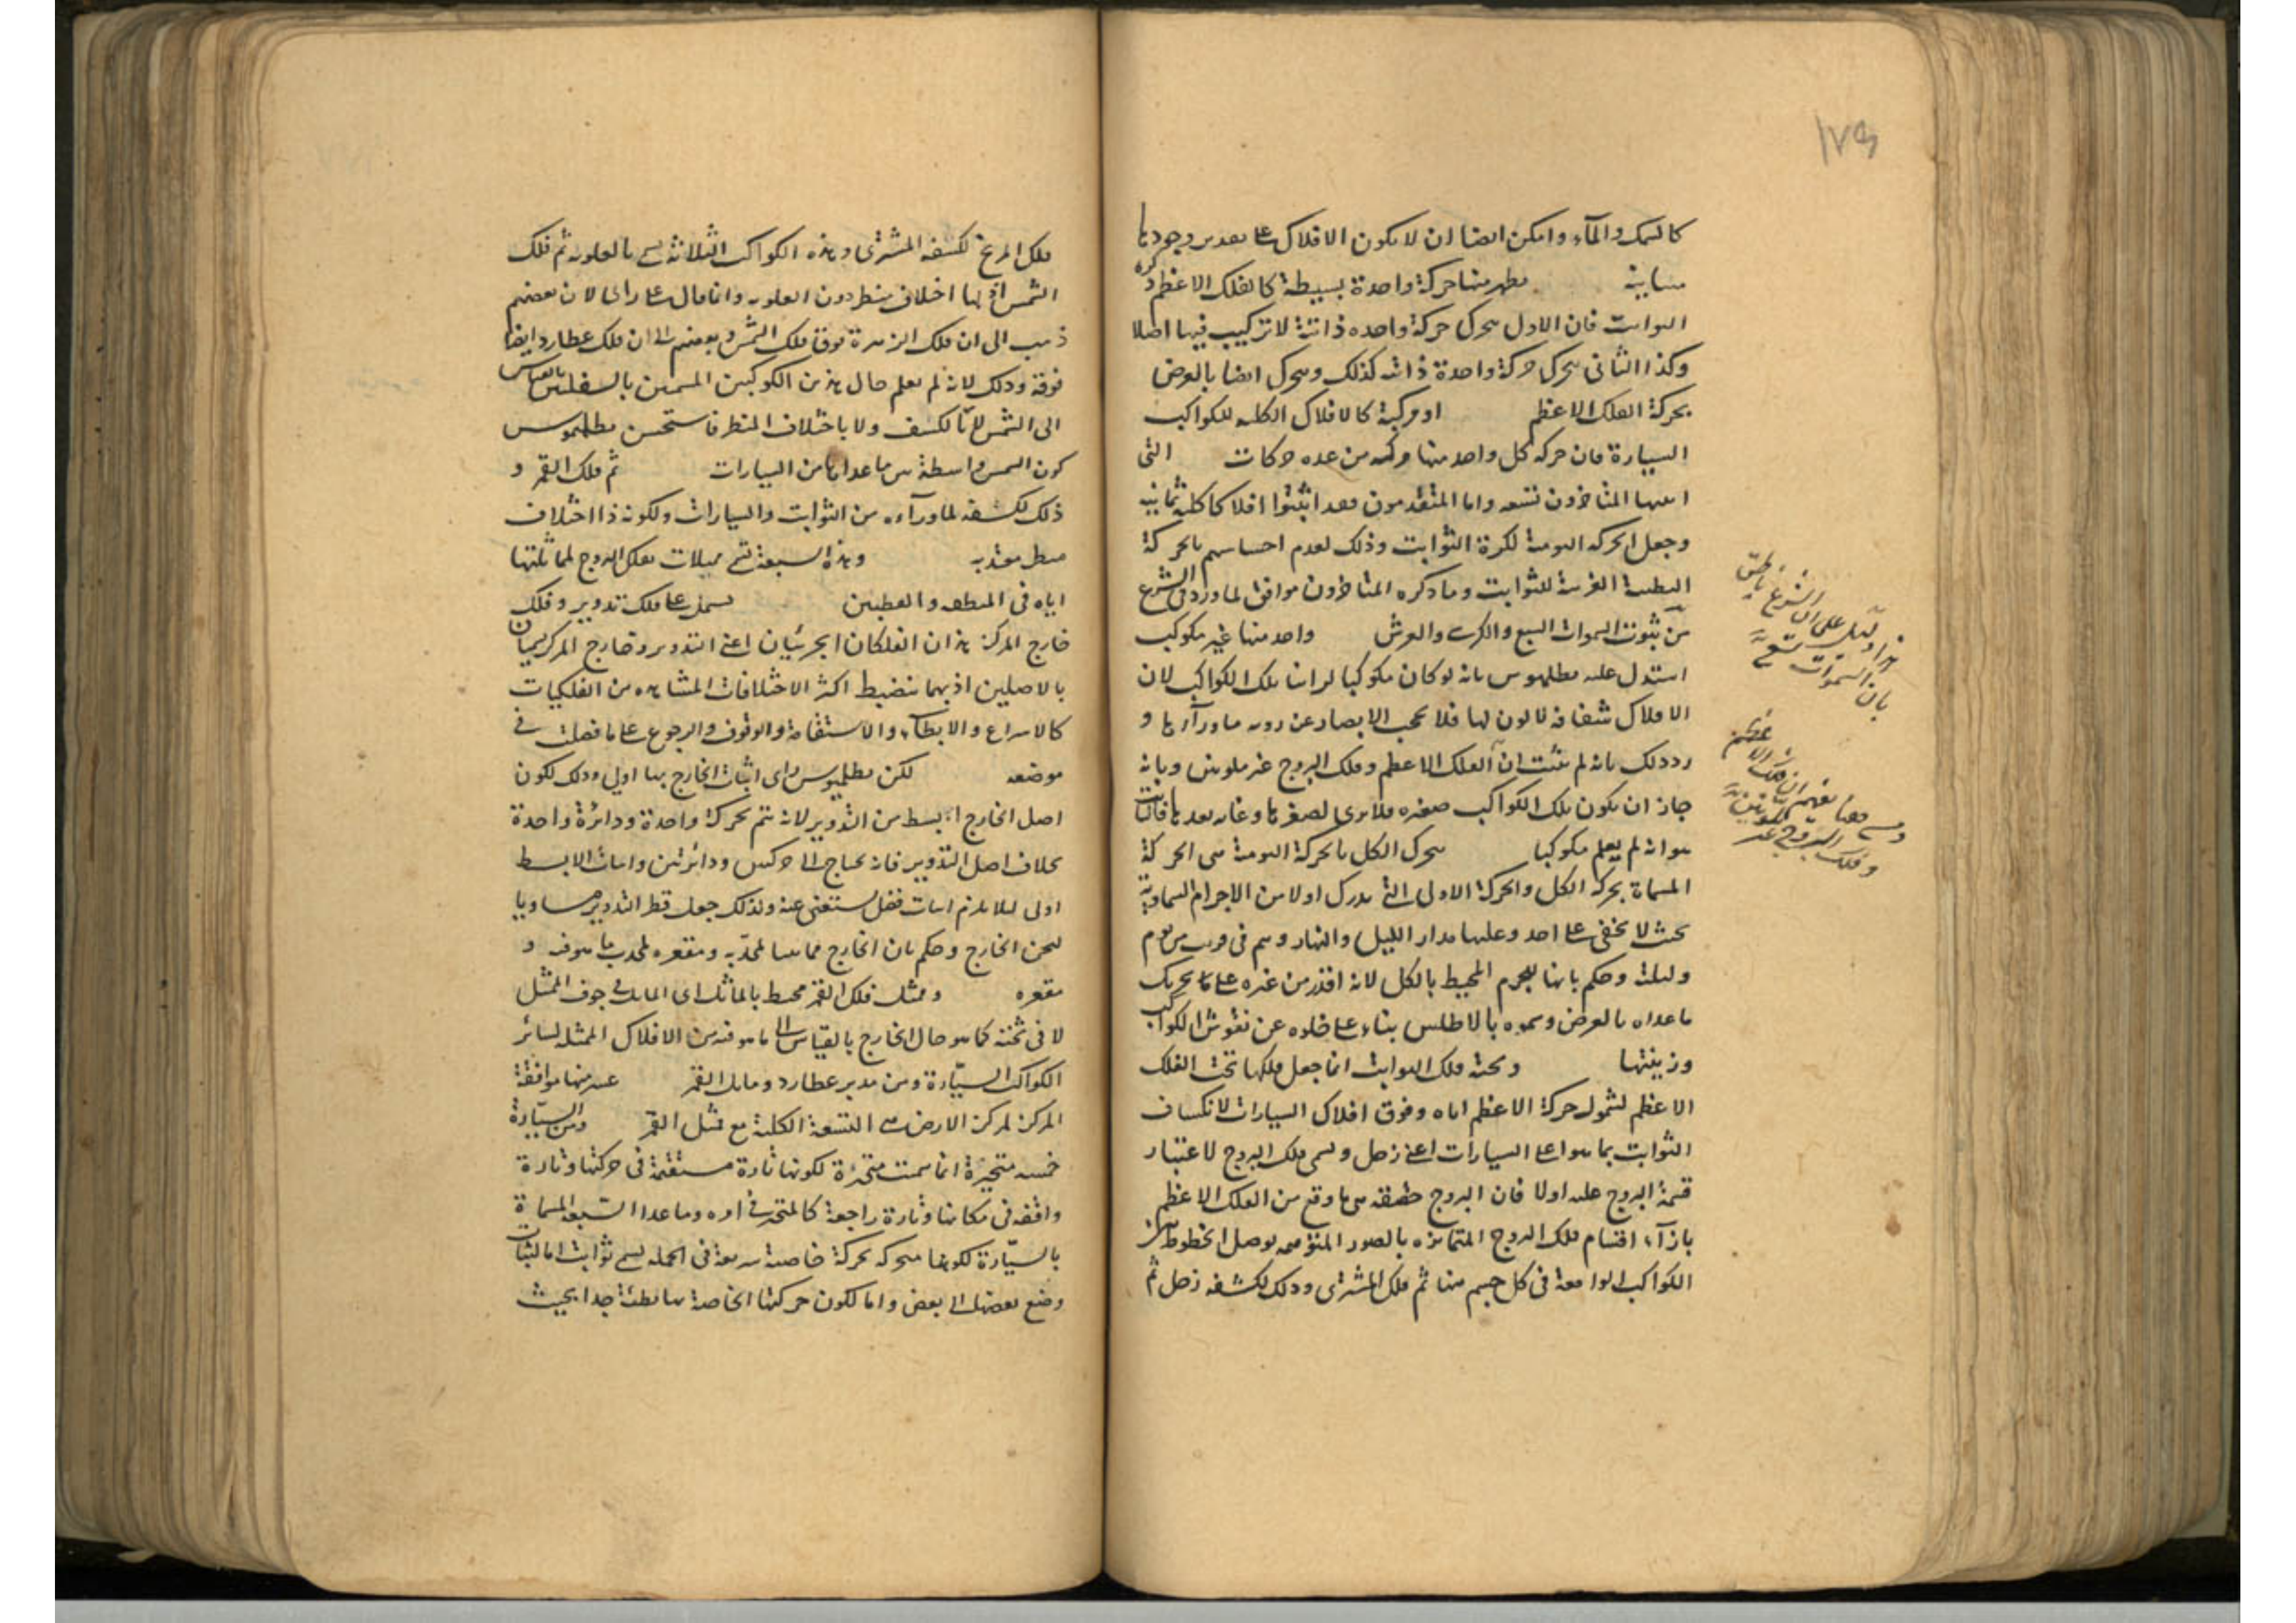 ١٧٩
كالسمك والمآء وامكن ايضا ان لا يكون الافلاك على تقدير وجودها
متباينة يظهر منها حركة واحدة بسيطة كالفلك الاعظم وكرة
الثوابت فان الاول يتحرك حركة واحده ذاتية لا تركيب فيها اصلا
وكذا الثاني يتحرك حركة واحدة ذاتيه كذلك ويتحرك ايضا بالعرض
بحركة الفلك الاعظم او مركبة كالافلاك الكليه للكواكب
السيارة فان حركه كل واحد منها مركبه من عده حركات التى
اثبتها المتاخرون تسعه واما المتقدمون فقد اثبتوا افلاكا كلية ثمانيه
وجعل الحركه اليومية لكرة الثوابت وذلك لعدم احساسهم بالحركة
البطيئة الغربية للثوابت وما ذكره المتاخرون موافق لما ورد فى الشرع
من ثبوت السموات السبع والكرسى والعرش واحد منها غير مكوكب
استدل عليه بطلميوس بانه لو كان مكوكبا لراينا تلك الكواكب لان
الافلاك شفافه لا لون لها فلا يحجب الابصار عن رويه ما ورآءها و
رد ذلك بانه لم يثبت ان الفلك الاعظم وفلك البروج غير ملونين وبانه
جاز ان يكون تلك الكواكب صغيره فلا يرى لصغرها وغايه بعدها فالثابت
هو انه لم يعلم مكوكبا يتحرك الكل بالحركة اليومية هى الحركة
المسماة بحركة الكل والحركة الاولى التى يدرك اولا من الاجرام السماوية
بحيث لا يخفى على احد وعليها مدار الليل والنهار ويتم فى قريب من يوم
وليلة وحكم بانها للجرم المحيط بالكل لانه اقدر من غيره على تحريك
ماعداه بالعرض وسموه بالاطلس بناء على خلوه عن نقوش الكواكب
وزينتها وتحته فلك الثوابت انما جعل فلكها تحت الفلك
الاعظم لشمول حركة الاعظم اياه وفوق افلاك السيارات لانكساف
الثوابت بما هو اعلى السيارات اعنى زحل ويسمى فلك البروج لاعتبار
قسمة البروج عليه اولا فان البروج حقيقه هى ما وقع من الفلك الاعظم
بازآء اقسام فلك البروج المتمايزه بالصور المتوهمه بوصل الخطوط
الكواكب الواقعة فى كل جسم منها ثم فلك المشترى وذلك لكشفه زحل ثم
هذا دليل على ان الشرع ناطق
بان السموات تسعة
ومن ههنا يفهم ان فلك الاعظم
وفلك البروج غير
فلك المريخ لكسفه المشترى وهذه الكواكب الثلاثة تسمى بالعلويه ثم فلك
الشمس اذ لها اختلاف منظر دون العلويه وانما قال على راى لان بعضهم
ذهب الى ان فلك الزهرة فوق فلك الشمس وبعضهم الى ان فلك عطارد ايضا
فوقه وذلك لانه لم يعلم حال هذين الكوكبين المسمين بالسفليين بالقياس
الى الشمس لا بالكسف ولا باختلاف المنظر فاستحسن بطلميوس
كون الشمس واسطة بين ما عداها من السيارات ثم فلك القمر و
ذلك لكسفه لما ورآءه من الثوابت والسيارات ولكونه ذا اختلاف
منظر معتد به وهذه السبعة تسمى ممثلات بفلك البروج لمماثلتها
اياه فى المنطقه والقطبين يشتمل على فلك تدوير وفلك
خارج المركز هذان الفلكان الجزئيان اعنى التدوير وخارج المركز يسميان
بالاصلين اذ بهما ينضبط اكثر الاختلافات المشاهده من الفلكيات
كالاسراع والابطآء والاستقامة والوقوف والرجوع على ما فصلت فى
موضعه لكن بطلميوس راى اثبات الخارج بها اولى وذلك لكون
اصل الخارج ابسط من التدوير لانه يتم بحركة واحدة ودائرة واحدة
بخلاف اصل التدوير فانه يحتاج الى حركتين ودائرتين واثبات الابسط
اولى لئلا يلزم اثبات فضل يستغنى عنه ولذلك جعل قطر التدوير مساويا
لثخن الخارج وحكم بان الخارج مماس بمحدبه ومقعره لمحدب ما هو فيه و
مقعره وممثل فلك القمر محيط بالمائل اى المائل فى جوف الممثل
لا فى ثخنه كما هو حال الخارج بالقياس الى ما هو فيه من الافلاك الممثله لسائر
الكواكب السيّارة ومن مدير عطارد ومائل القمر عشر منها موافقة
المركز لمركز الارض هى التسعة الكلية مع ممثل القمر ومن السيّارة
خمسه متحيّرة انما سميت متحيّرة لكونها تارة مستقيمة فى حركتها وتارة
واقفه فى مكانها وتارة راجعة كالمتحير فى امره وما عدا السبعه المسماة
بالسيّارة لكونها متحركه بحركة خاصة سريعة فى الجمله يسمى ثوابت اما لثبات
وضع بعضها الى بعض واما لكون حركتها الخاصة بها بطيئة جدا بحيث